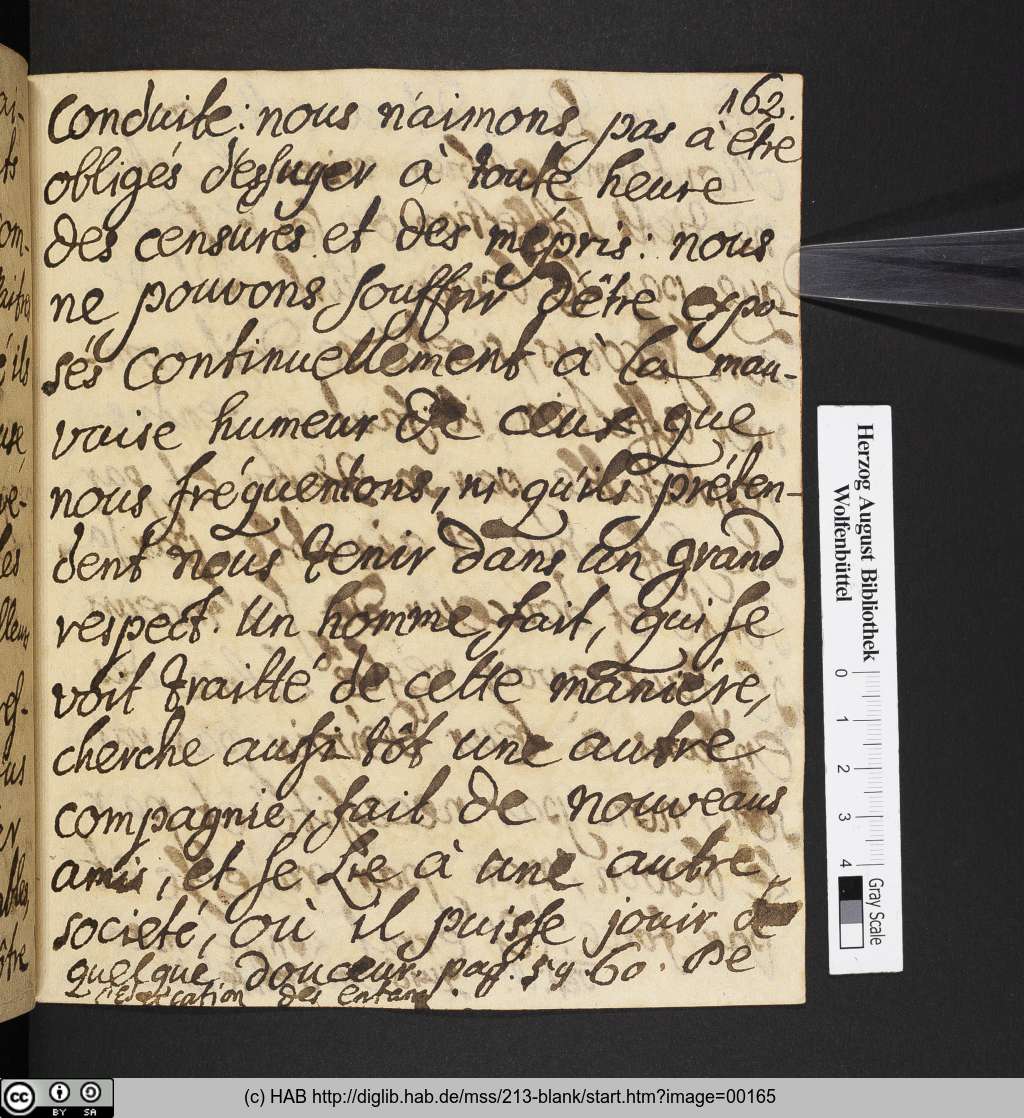 162.
conduite: nous n'aimons pas à étre
obligés d'essujer à toute heure
des censures et des mépris: nous
ne pouvons souffrir d'être expo-
sés continuellement à la mau-
vaise humeur de ceux que
nous fréquentons, ni qu'ils préten-
dent nous tenir dans un grand
respect. Un homme fait, qui se
voit traitté de cette maniére,
cherche aussi tôt une autre
compagnie, fait de nouveaus
amis, et se lie à une autre
societé, où il puisse jouir de
quelque douceur. pag. 59.60. De
l'education des enfans.
Herzog August Bibliothek
Wolfenbüttel
0 1 2 3 4
Gray Scale
(c) HAB http://diglib.hab.de/mss/213-blank/start.htm?image=00165
cc BY SA